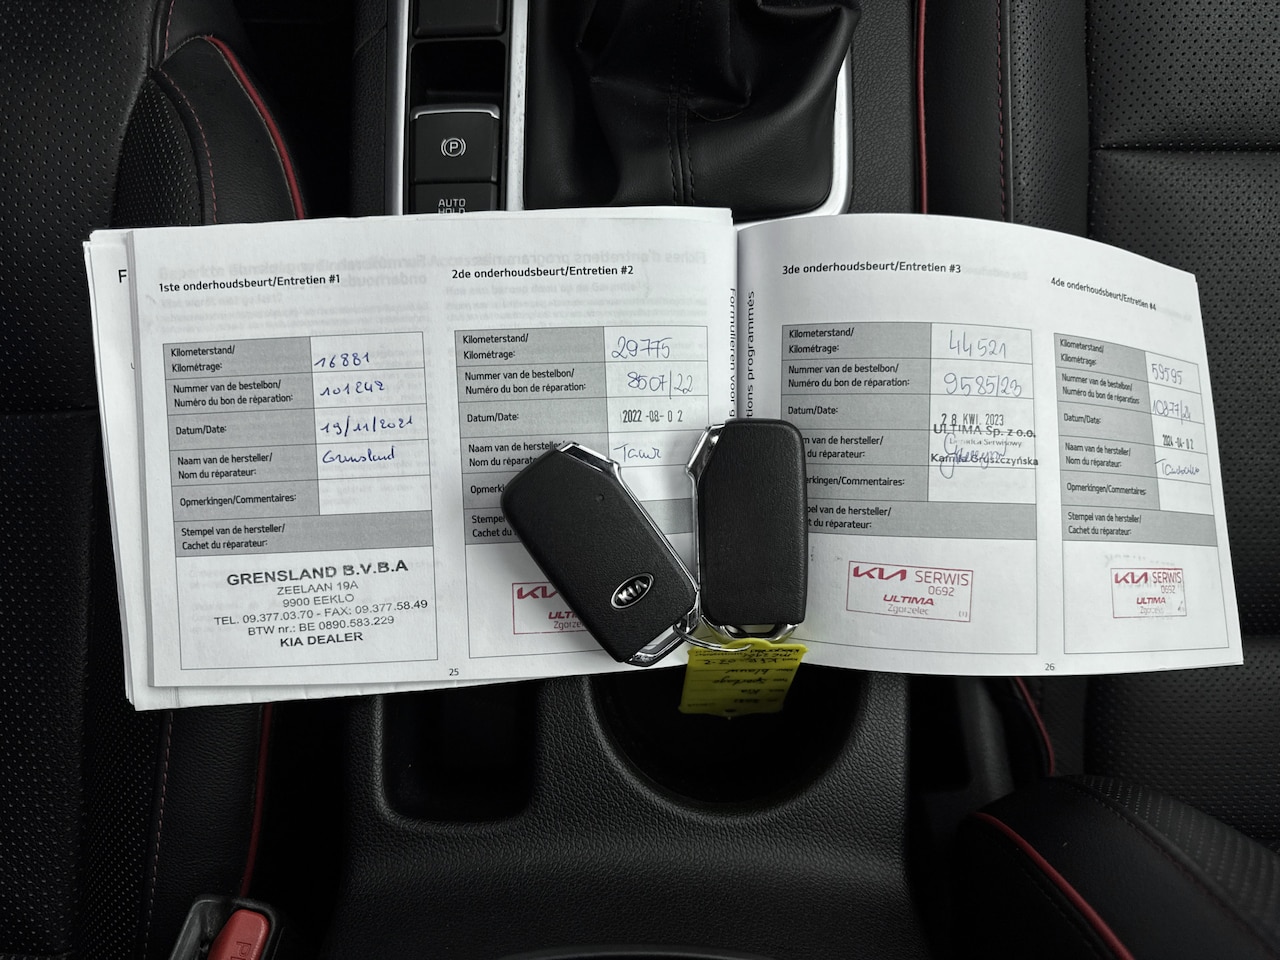 AUTO
HOLD
F
1ste onderhoudsbeurt/Entretien #1
Kilometerstand/
Kilométrage:
16881
Nummer van de bestelbon/
Numéro du bon de réparation:
101248
Datum/Date:
19/11/2021
Naam van de hersteller/
Nom du réparateur:
Grensland
Opmerkingen/Commentaires:
Stempel van de hersteller/
Cachet du réparateur:
GRENSLAND B.V.B.A
ZEELAAN 19A
9900 EEKLO
TEL. 09.377.03.70 - FAX: 09.377.58.49
BTW nr.: BE 0890.583.229
KIA DEALER
25
2de onderhoudsbeurt/Entretien #2
Kilometerstand/
Kilométrage:
29775
Nummer van de bestelbon/
Numéro du bon de réparation:
8507/22
Datum/Date:
2022-08-02
Naam van de hersteller/
Nom du réparateur:
Opmerki
Stempel
Cachet du
KIA
ULTIMA
Zgorzelec
Formulieren voor g
tions programmés
3de onderhoudsbeurt/Entretien #3
Kilometerstand/
Kilométrage:
44521
Nummer van de bestelbon/
Numéro du bon de réparation:
9585/23
Datum/Date:
28 KWI. 2023
ULTIMA Sp. z o.o.
Doradca Serwisowy
Kamila Gruszczyńska
Naam van de hersteller/
Nom du réparateur:
erkingen/Commentaires:
pel van de hersteller/
t du réparateur:
KIA SERWIS
0692
ULTIMA
Zgorzelec
4de onderhoudsbeurt/Entretien #4
Kilometerstand/
Kilométrage:
59595
Nummer van de bestelbon/
Numéro du bon de réparation:
10877/24
Datum/Date:
2024-04-02
Naam van de hersteller/
Nom du réparateur:
Opmerkingen/Commentaires:
Stempel van de hersteller/
Cachet du réparateur:
KIA SERWIS
0692
ULTIMA
Zgorzelec
26
KIA
Kia
Sportage
blauw